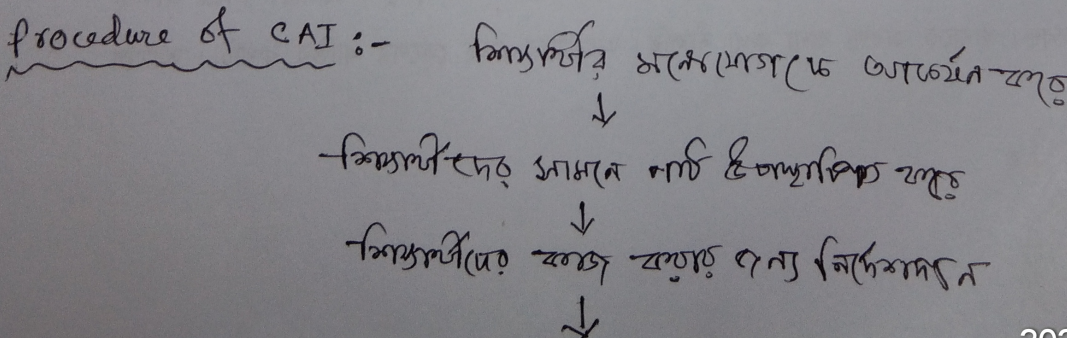 Procedure of CAI :- শিক্ষার্থীর মনোযোগকে আকর্ষন করে
↓
শিক্ষার্থীদের সামনে পাঠ উপস্থাপিত করে
↓
শিক্ষার্থীদের কাজ করার জন্য নির্দেশদান
↓